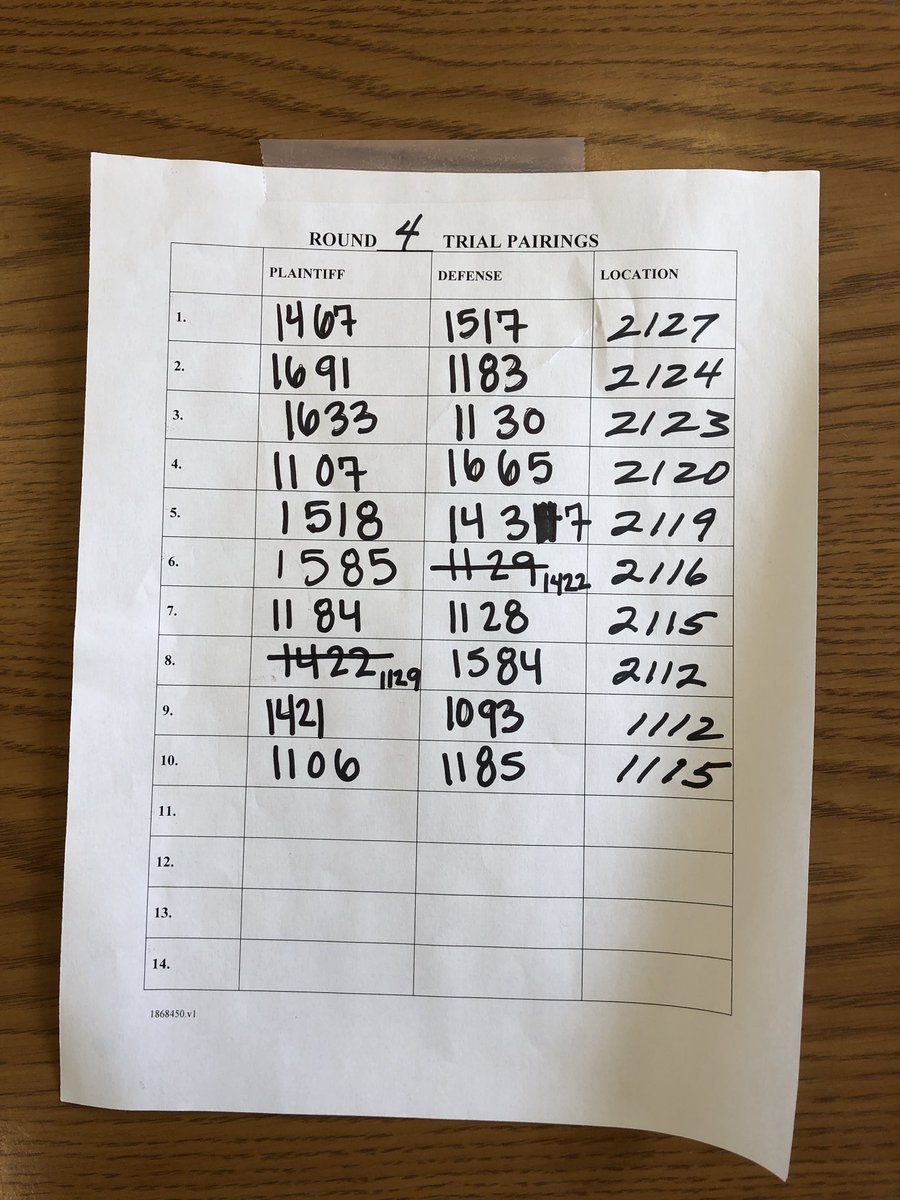 ROUND 4 TRIAL PAIRINGS
PLAINTIFF DEFENSE LOCATION
1. 1467 1517 2127
2. 1691 1183 2124
3. 1633 1130 2123
4. 1107 1665 2120
5. 1518 1437 2119
6. 1585 1129 1422 2116
7. 1184 1128 2115
8. 1422 1129 1584 2112
9. 1421 1093 1112
10. 1106 1185 1115
11.
12.
13.
14.
1868450.v1